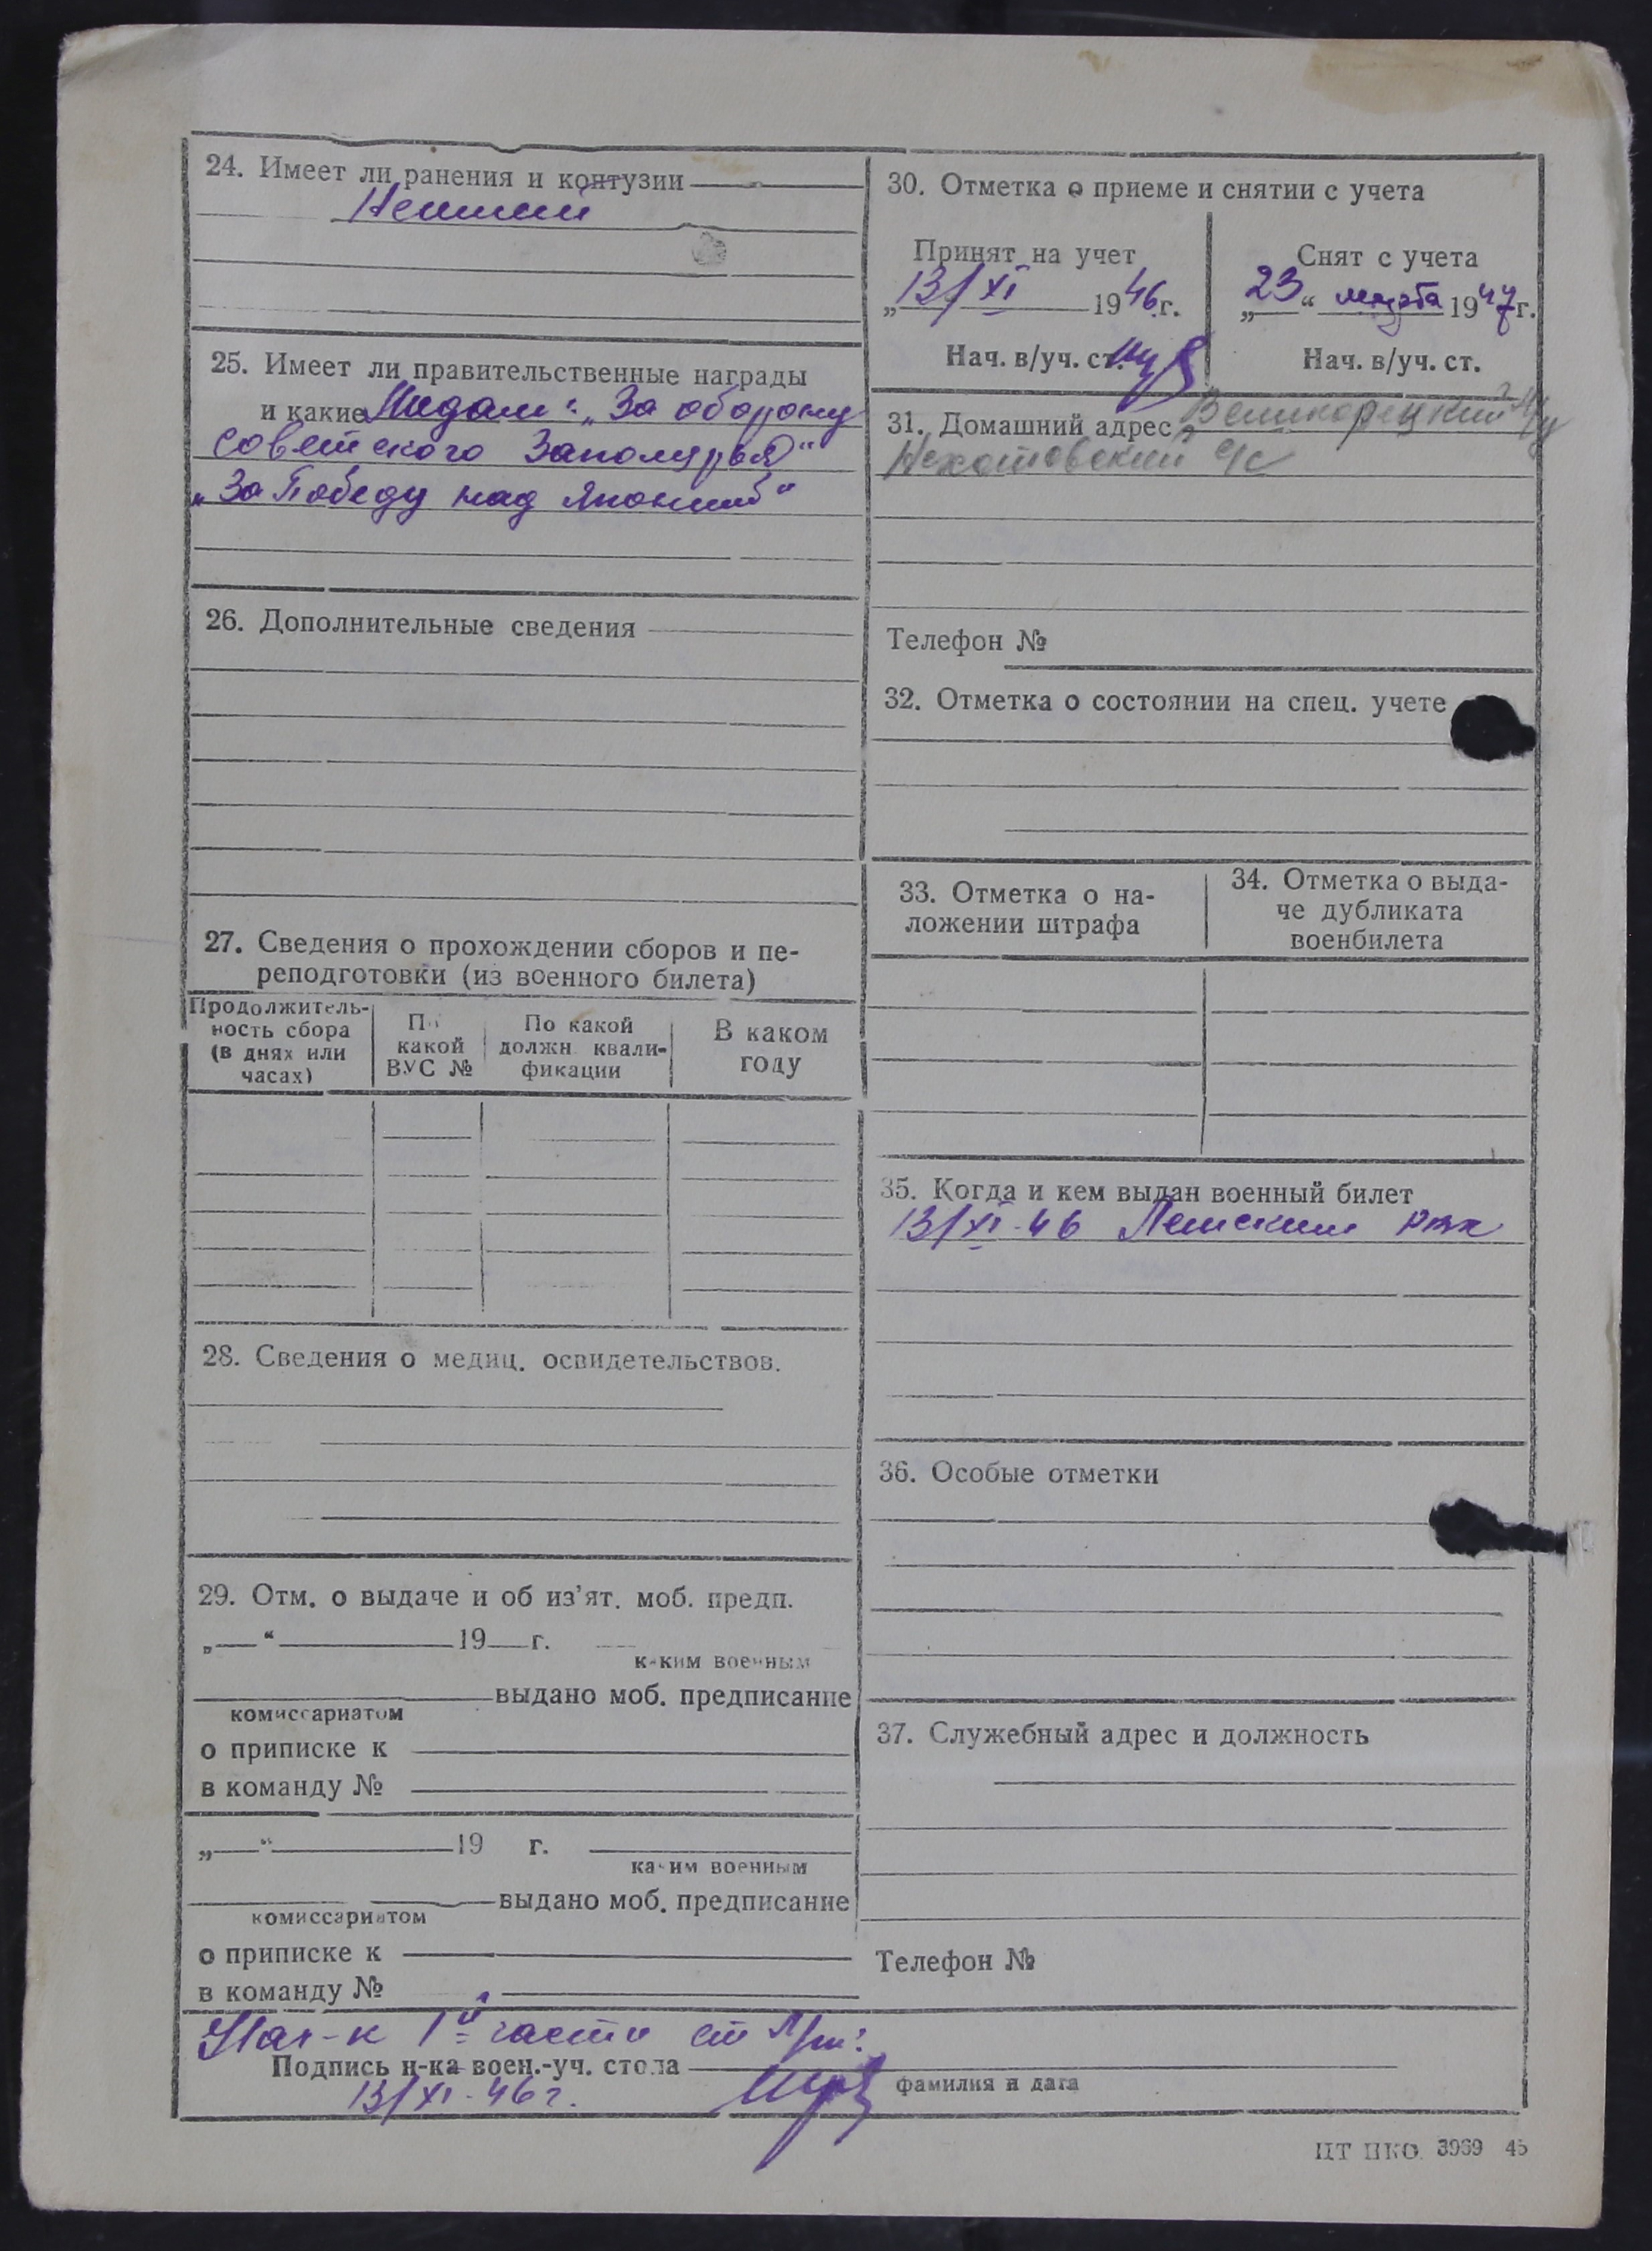 24. Имеет ли ранения и контузии
25. Имеет ли правительственные награды
и какие Медали: „За оборону
советского Заполярья“
„За Победу над Японией“
26. Дополнительные сведения
27. Сведения о прохождении сборов и пе-
реподготовки (из военного билета)
Продолжитель-
ность сбора
(в днях или
часах)
По
какой
ВУС №
По какой
должн. квали-
фикации
В каком
году
28. Сведения о медиц. освидетельствов.
29. Отм. о выдаче и об из'ят. моб. предп.
„ “ 19 г.
каким военным
выдано моб. предписание
комиссариатом
о приписке к
в команду №
„ “ 19 г.
каким военным
выдано моб. предписание
комиссариатом
о приписке к
в команду №
30. Отметка о приеме и снятии с учета
Принят на учет
„13/XI 1946г.
Нач. в/уч. ст.
Снят с учета
„23“ марта 1947г.
Нач. в/уч. ст.
31. Домашний адрес Великорецкий
с/с
Телефон №
32. Отметка о состоянии на спец. учете
33. Отметка о на-
ложении штрафа
34. Отметка о выда-
че дубликата
военбилета
35. Когда и кем выдан военный билет
13/XI-46 РВК
36. Особые отметки
37. Служебный адрес и должность
Телефон №
Нач-к 1й части ст
Подпись н-ка воен.-уч. стола
фамилия и дата
13/XI-46г.
ЦТ НКО. 3969 45